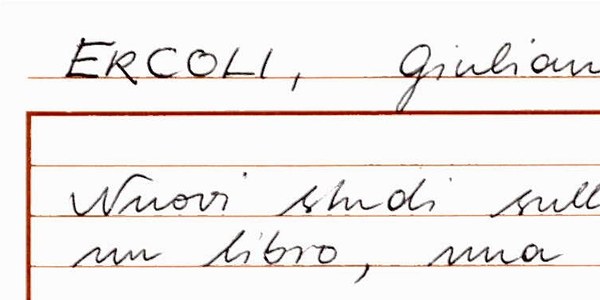 ERCOLI, Giulian
Nuovi studi sull
un libro, una